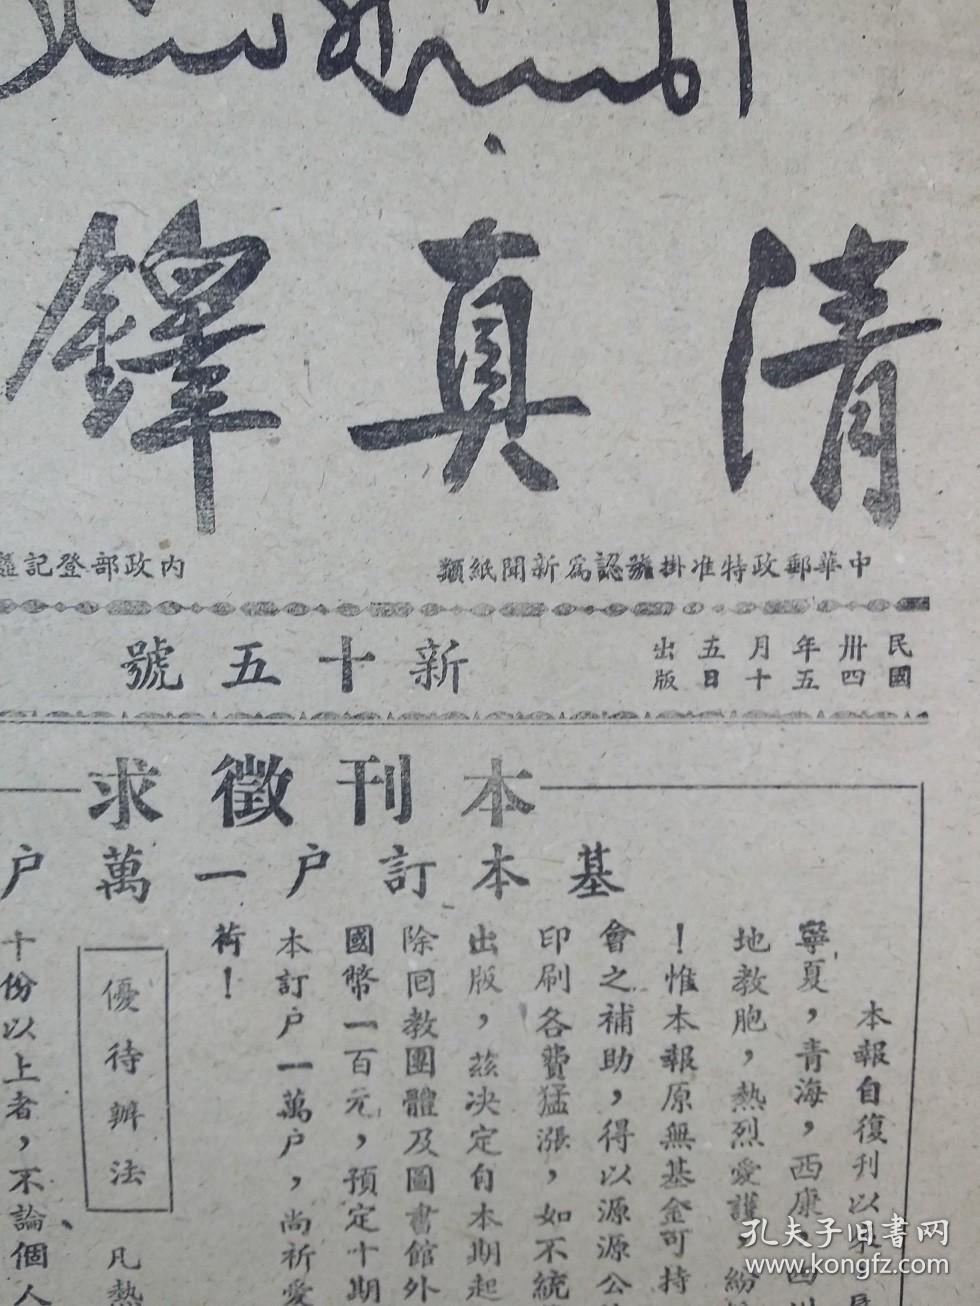 清真鐸
中華郵政特准掛號認爲新聞紙類
內政部登記
民國卅四年五月十五日出版
新十五號
本刊徵求
基本訂户一萬户
本報自復刊以來
寧夏，青海，西康
地教胞，熱烈愛護，紛
！惟本報原無基金可持
會之補助，得以源源公
印刷各費猛漲，如不統
出版，茲决定自本期起
除回教團體及圖書館外
國幣一百元，預定十期
本訂户一萬户，尚祈愛
荷！
優待辦法
凡熱
十份以上者，不論個人
孔夫子旧書网
www.kongfz.com